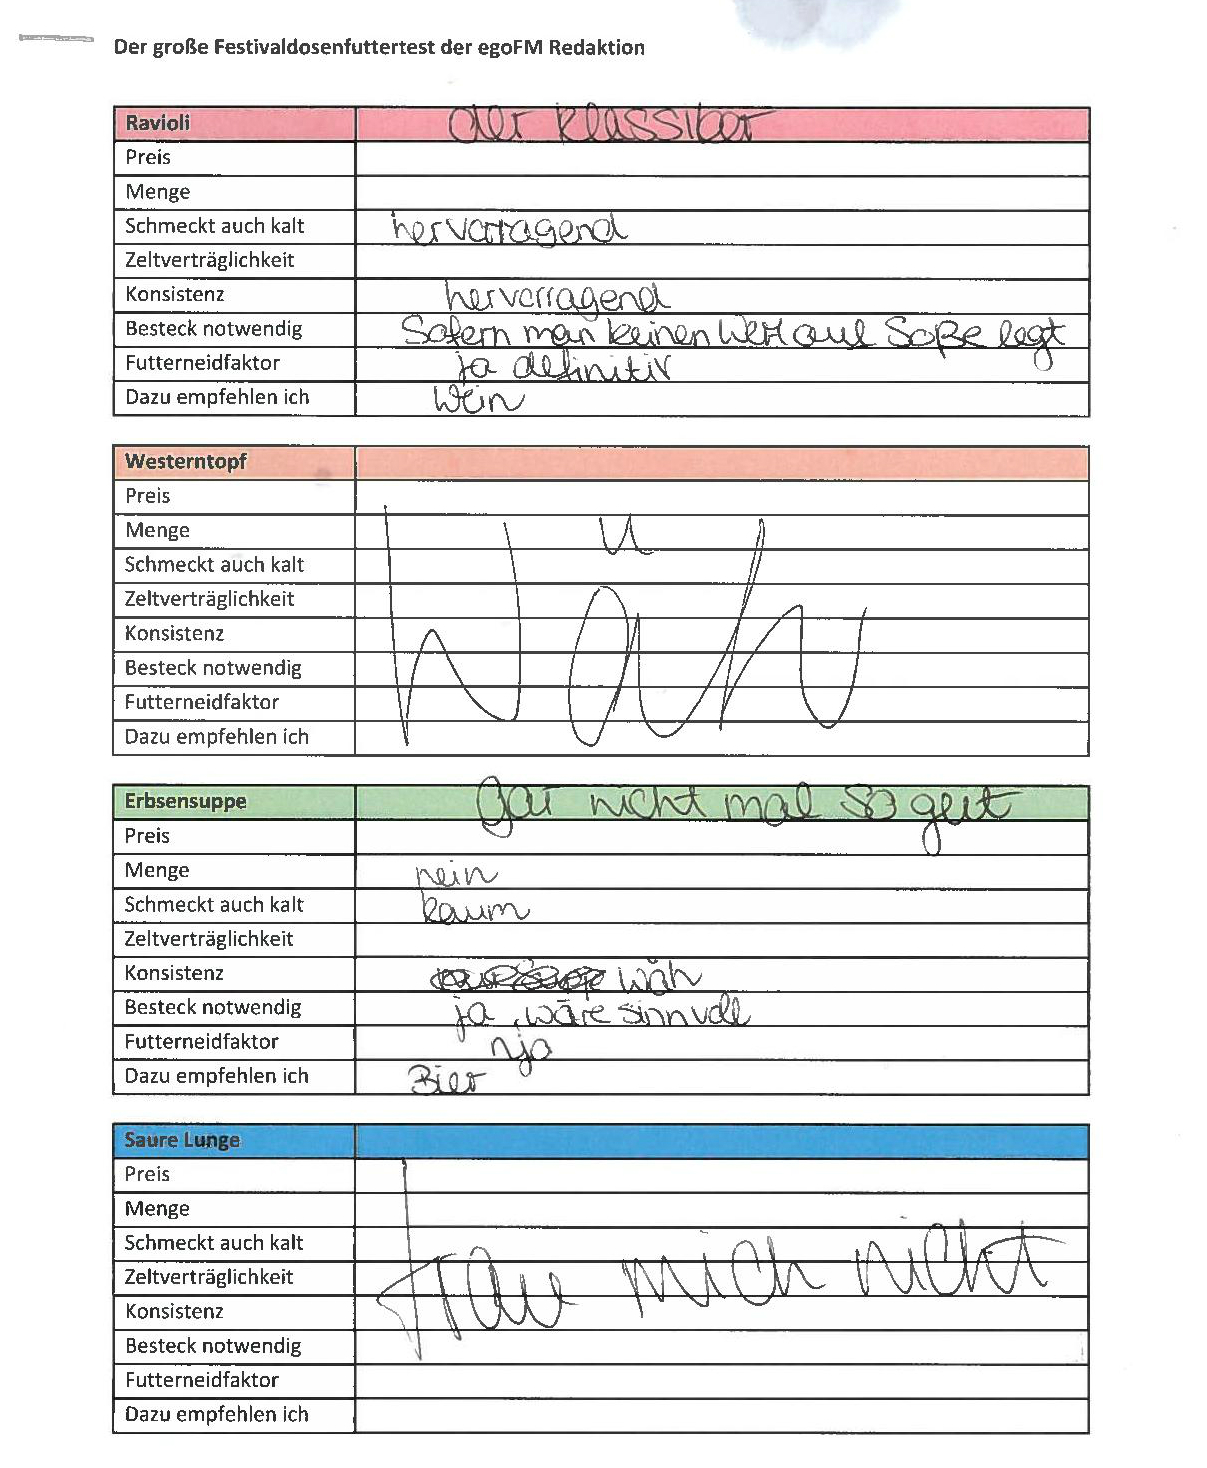 Der große Festivaldosenfuttertest der egoFM Redaktion
Ravioli der Klassiker
Preis
Menge
Schmeckt auch kalt hervorragend
Zeltverträglichkeit
Konsistenz hervorragend
Besteck notwendig Sofern man keinen Wert auf Soße legt
Futterneidfaktor ja definitiv
Dazu empfehlen ich Wein
Westerntopf
Preis
Menge
Schmeckt auch kalt
Zeltverträglichkeit
Konsistenz
Besteck notwendig
Futterneidfaktor
Dazu empfehlen ich
Wäh
Erbsensuppe Gar nicht mal so gut
Preis
Menge nein
Schmeckt auch kalt kaum
Zeltverträglichkeit
Konsistenz wäh
Besteck notwendig ja, wäre sinnvoll
Futterneidfaktor nja
Dazu empfehlen ich Bier
Saure Lunge
Preis
Menge
Schmeckt auch kalt
Zeltverträglichkeit
Konsistenz
Besteck notwendig
Futterneidfaktor
Dazu empfehlen ich
trau mich nicht